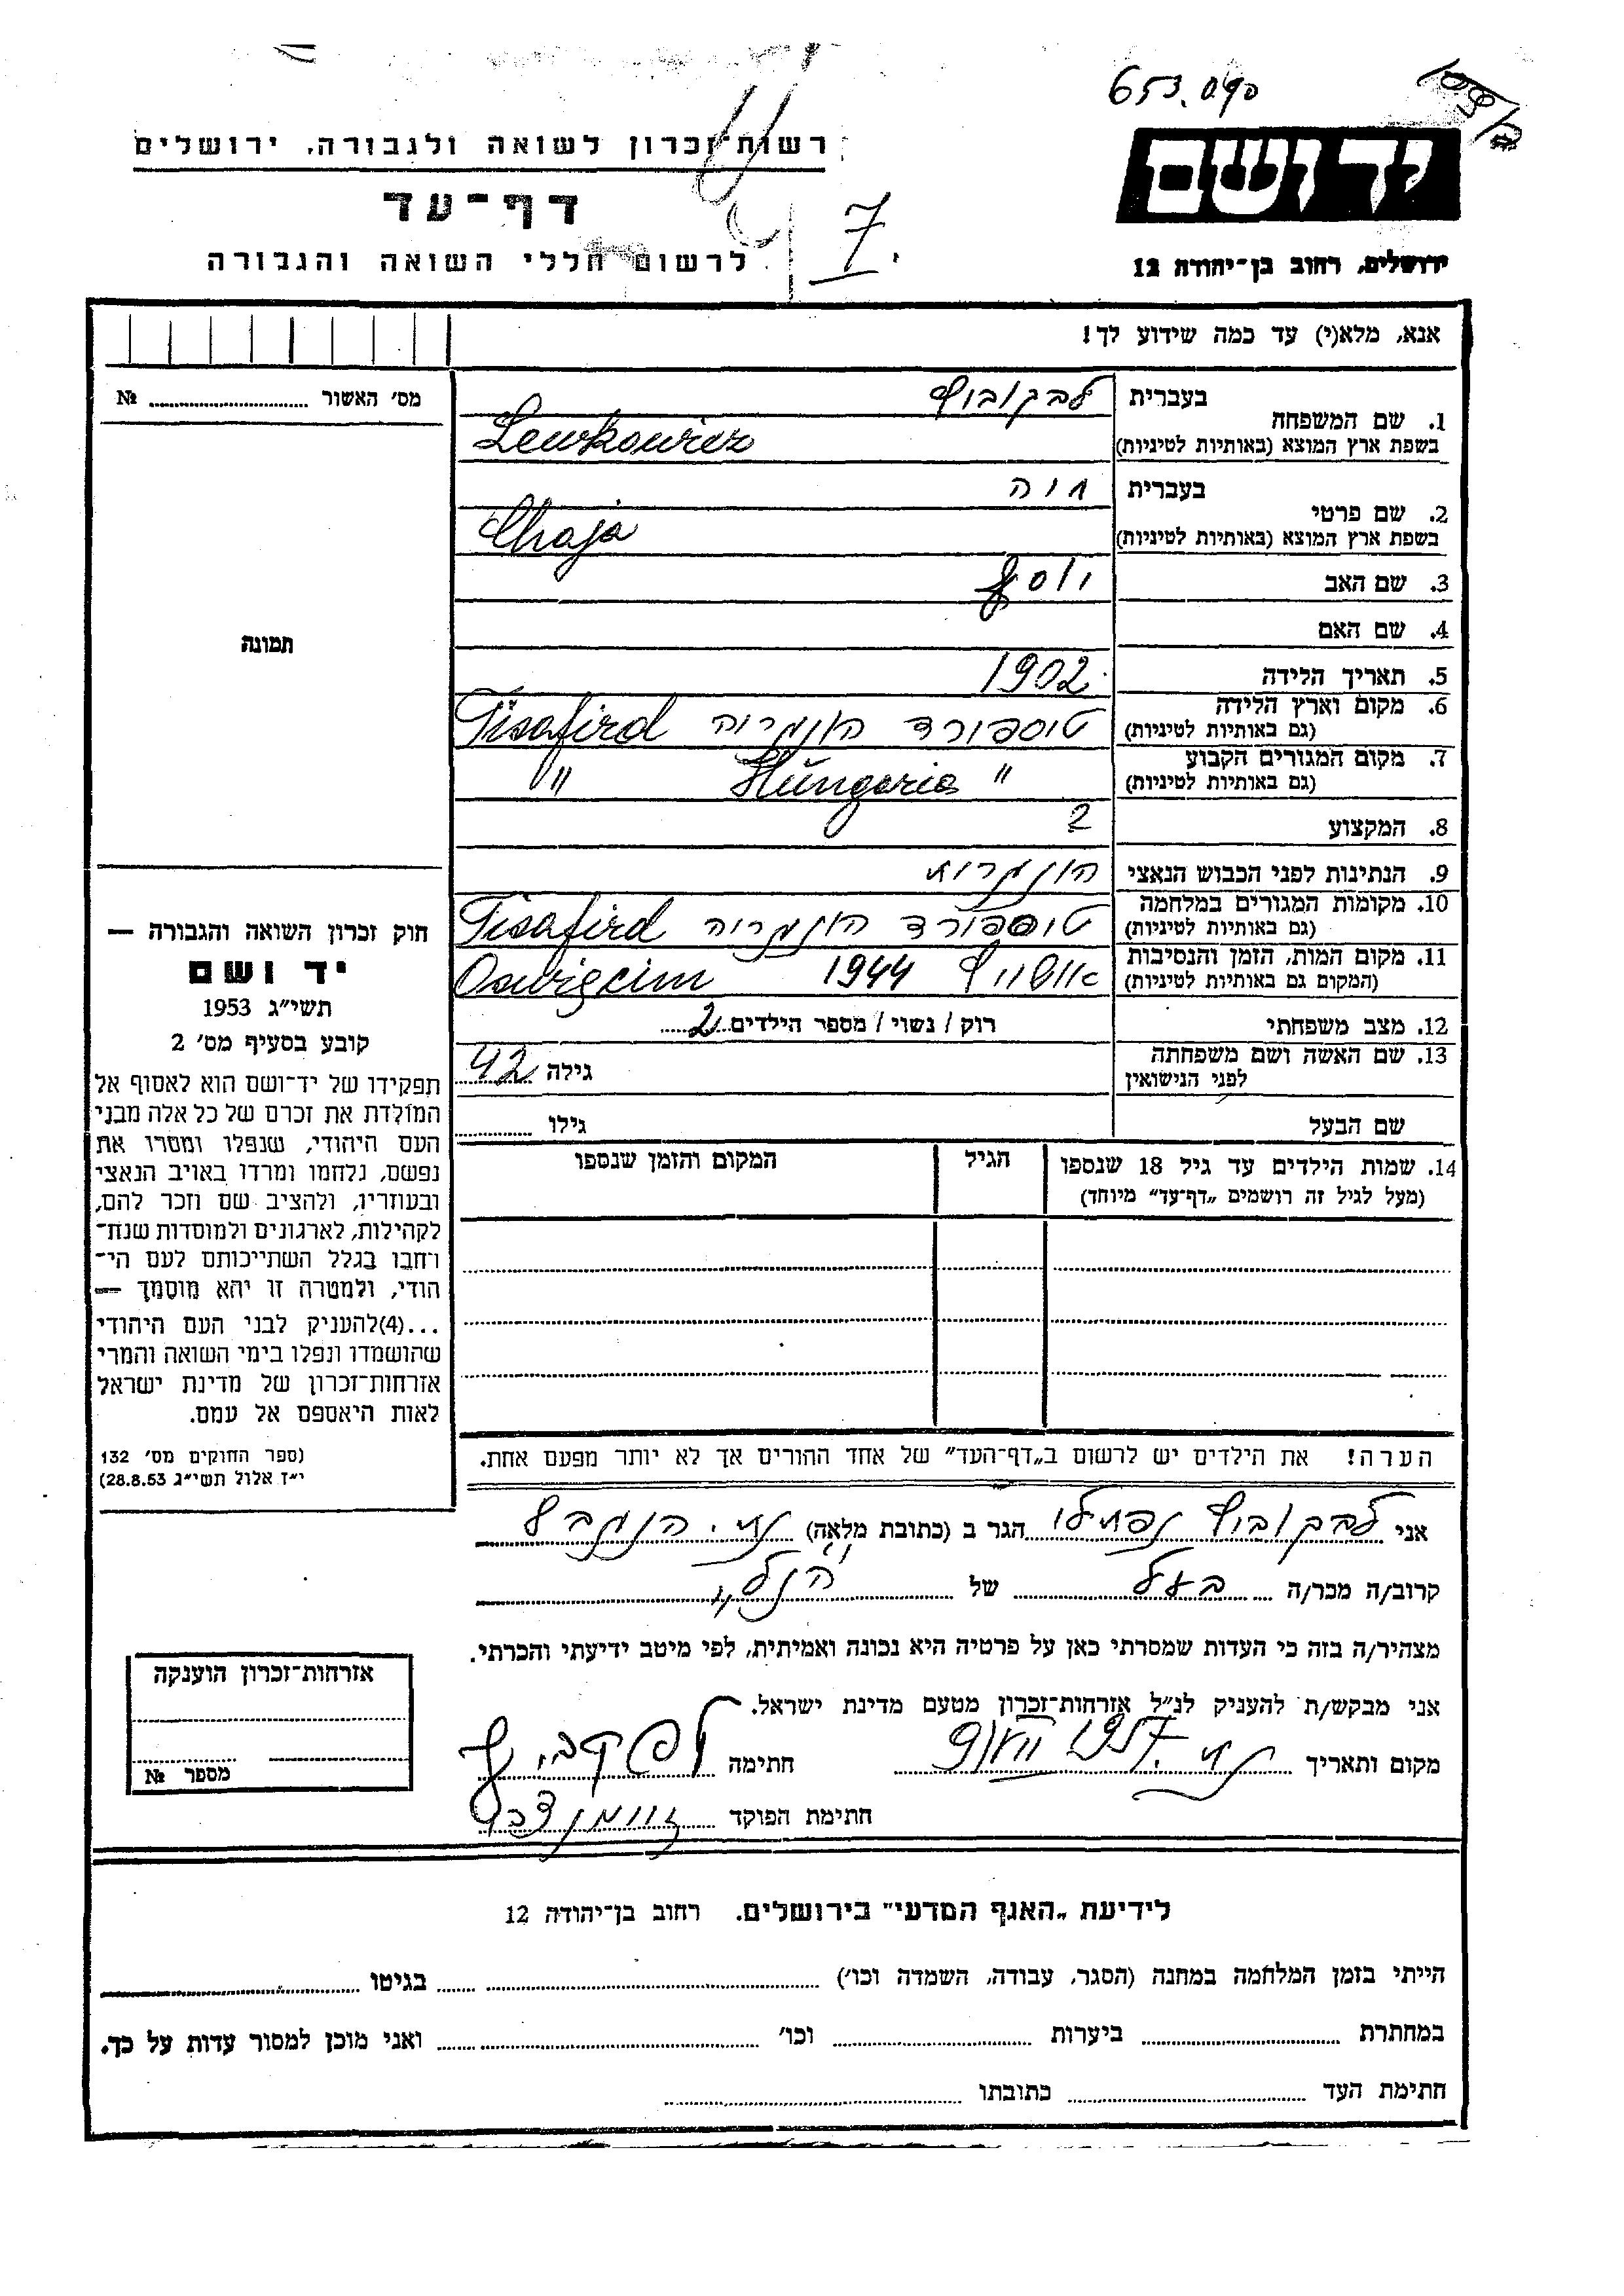 653.090
רשות-זכרון לשואה ולגבורה, ירושלים
דף-עד
לרשום חללי השואה והגבורה
7.
יד ושם
ירושלים, רחוב בן-יהודה 12
אנא, מלא(י) עד כמה שידוע לך!
מס' האשור № 
תמונה
חוק זכרון השואה והגבורה —
יד ושם
תשי״ג 1953
קובע בסעיף מס' 2
תפקידו של יד-ושם הוא לאסוף אל
המולדת את זכרם של כל אלה מבני
העם היהודי, שנפלו ומסרו את
נפשם, נלחמו ומרדו באויב הנאצי
ובעוזריו, ולהציב שם וזכר להם,
לקהילות, לארגונים ולמוסדות שנח-
רחבו בגלל השתייכותם לעם הי-
הודי, ולמטרה זו יהא מוסמך —
...(4)להעניק לבני העם היהודי
שהושמדו ונפלו בימי השואה והמרי
אזרחות-זכרון של מדינת ישראל
לאות היאספם אל עמם.
(ספר החוקים מס' 132
י״ז אלול תשי״ג 28.8.53)
1. שם המשפחה בעברית לבקוביץ
בשפת ארץ המוצא (באותיות לטיניות) Lewkowicz
2. שם פרטי בעברית חוה
בשפת ארץ המוצא (באותיות לטיניות) Chaja
3. שם האב יוסף
4. שם האם
5. תאריך הלידה 1902
6. מקום וארץ הלידה (גם באותיות לטיניות) טיספורד הונגריה Tisafird
7. מקום המגורים הקבוע (גם באותיות לטיניות) " Hungaria "
8. המקצוע ?
9. הנתינות לפני הכבוש הנאצי הונגרית
10. מקומות המגורים במלחמה (גם באותיות לטיניות) טיספורד הונגריה Tisafird
11. מקום המות, הזמן והנסיבות (המקום גם באותיות לטיניות) אושויץ 1944 Oswigcim
12. מצב משפחתי רוק / נשוי / מספר הילדים 2
13. שם האשה ושם משפחתה לפני הנישואין גילה 42
שם הבעל גילו
14. שמות הילדים עד גיל 18 שנספו הגיל המקום והזמן שנספו
(מעל לגיל זה רושמים „דף-עד״ מיוחד)
הערה! את הילדים יש לרשום ב„דף-העד״ של אחד ההורים אך לא יותר מפעם אחת.
אני לבקוביץ נפתלי הגר ב (כתובת מלאה)
קרוב/ה מכר/ה בעל של הנ״ל
מצהיר/ה בזה כי העדות שמסרתי כאן על פרטיה היא נכונה ואמיתית, לפי מיטב ידיעתי והכרתי.
אני מבקש/ת להעניק לנ״ל אזרחות-זכרון מטעם מדינת ישראל.
מקום ותאריך חתימה
חתימת הפוקד
אזרחות-זכרון הוענקה
מספר №
לידיעת „האגף המדעי״ בירושלים. רחוב בן-יהודה 12
הייתי בזמן המלחמה במחנה (הסגר, עבודה, השמדה וכו') בגיטו
במחתרת ביערות וכו' ואני מוכן למסור עדות על כך.
חתימת העד כתובתו